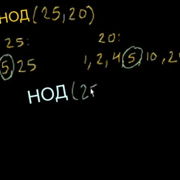 НОД(25,20)
25: 20:
5,25 1,2,4,5,10,2
НОД(25